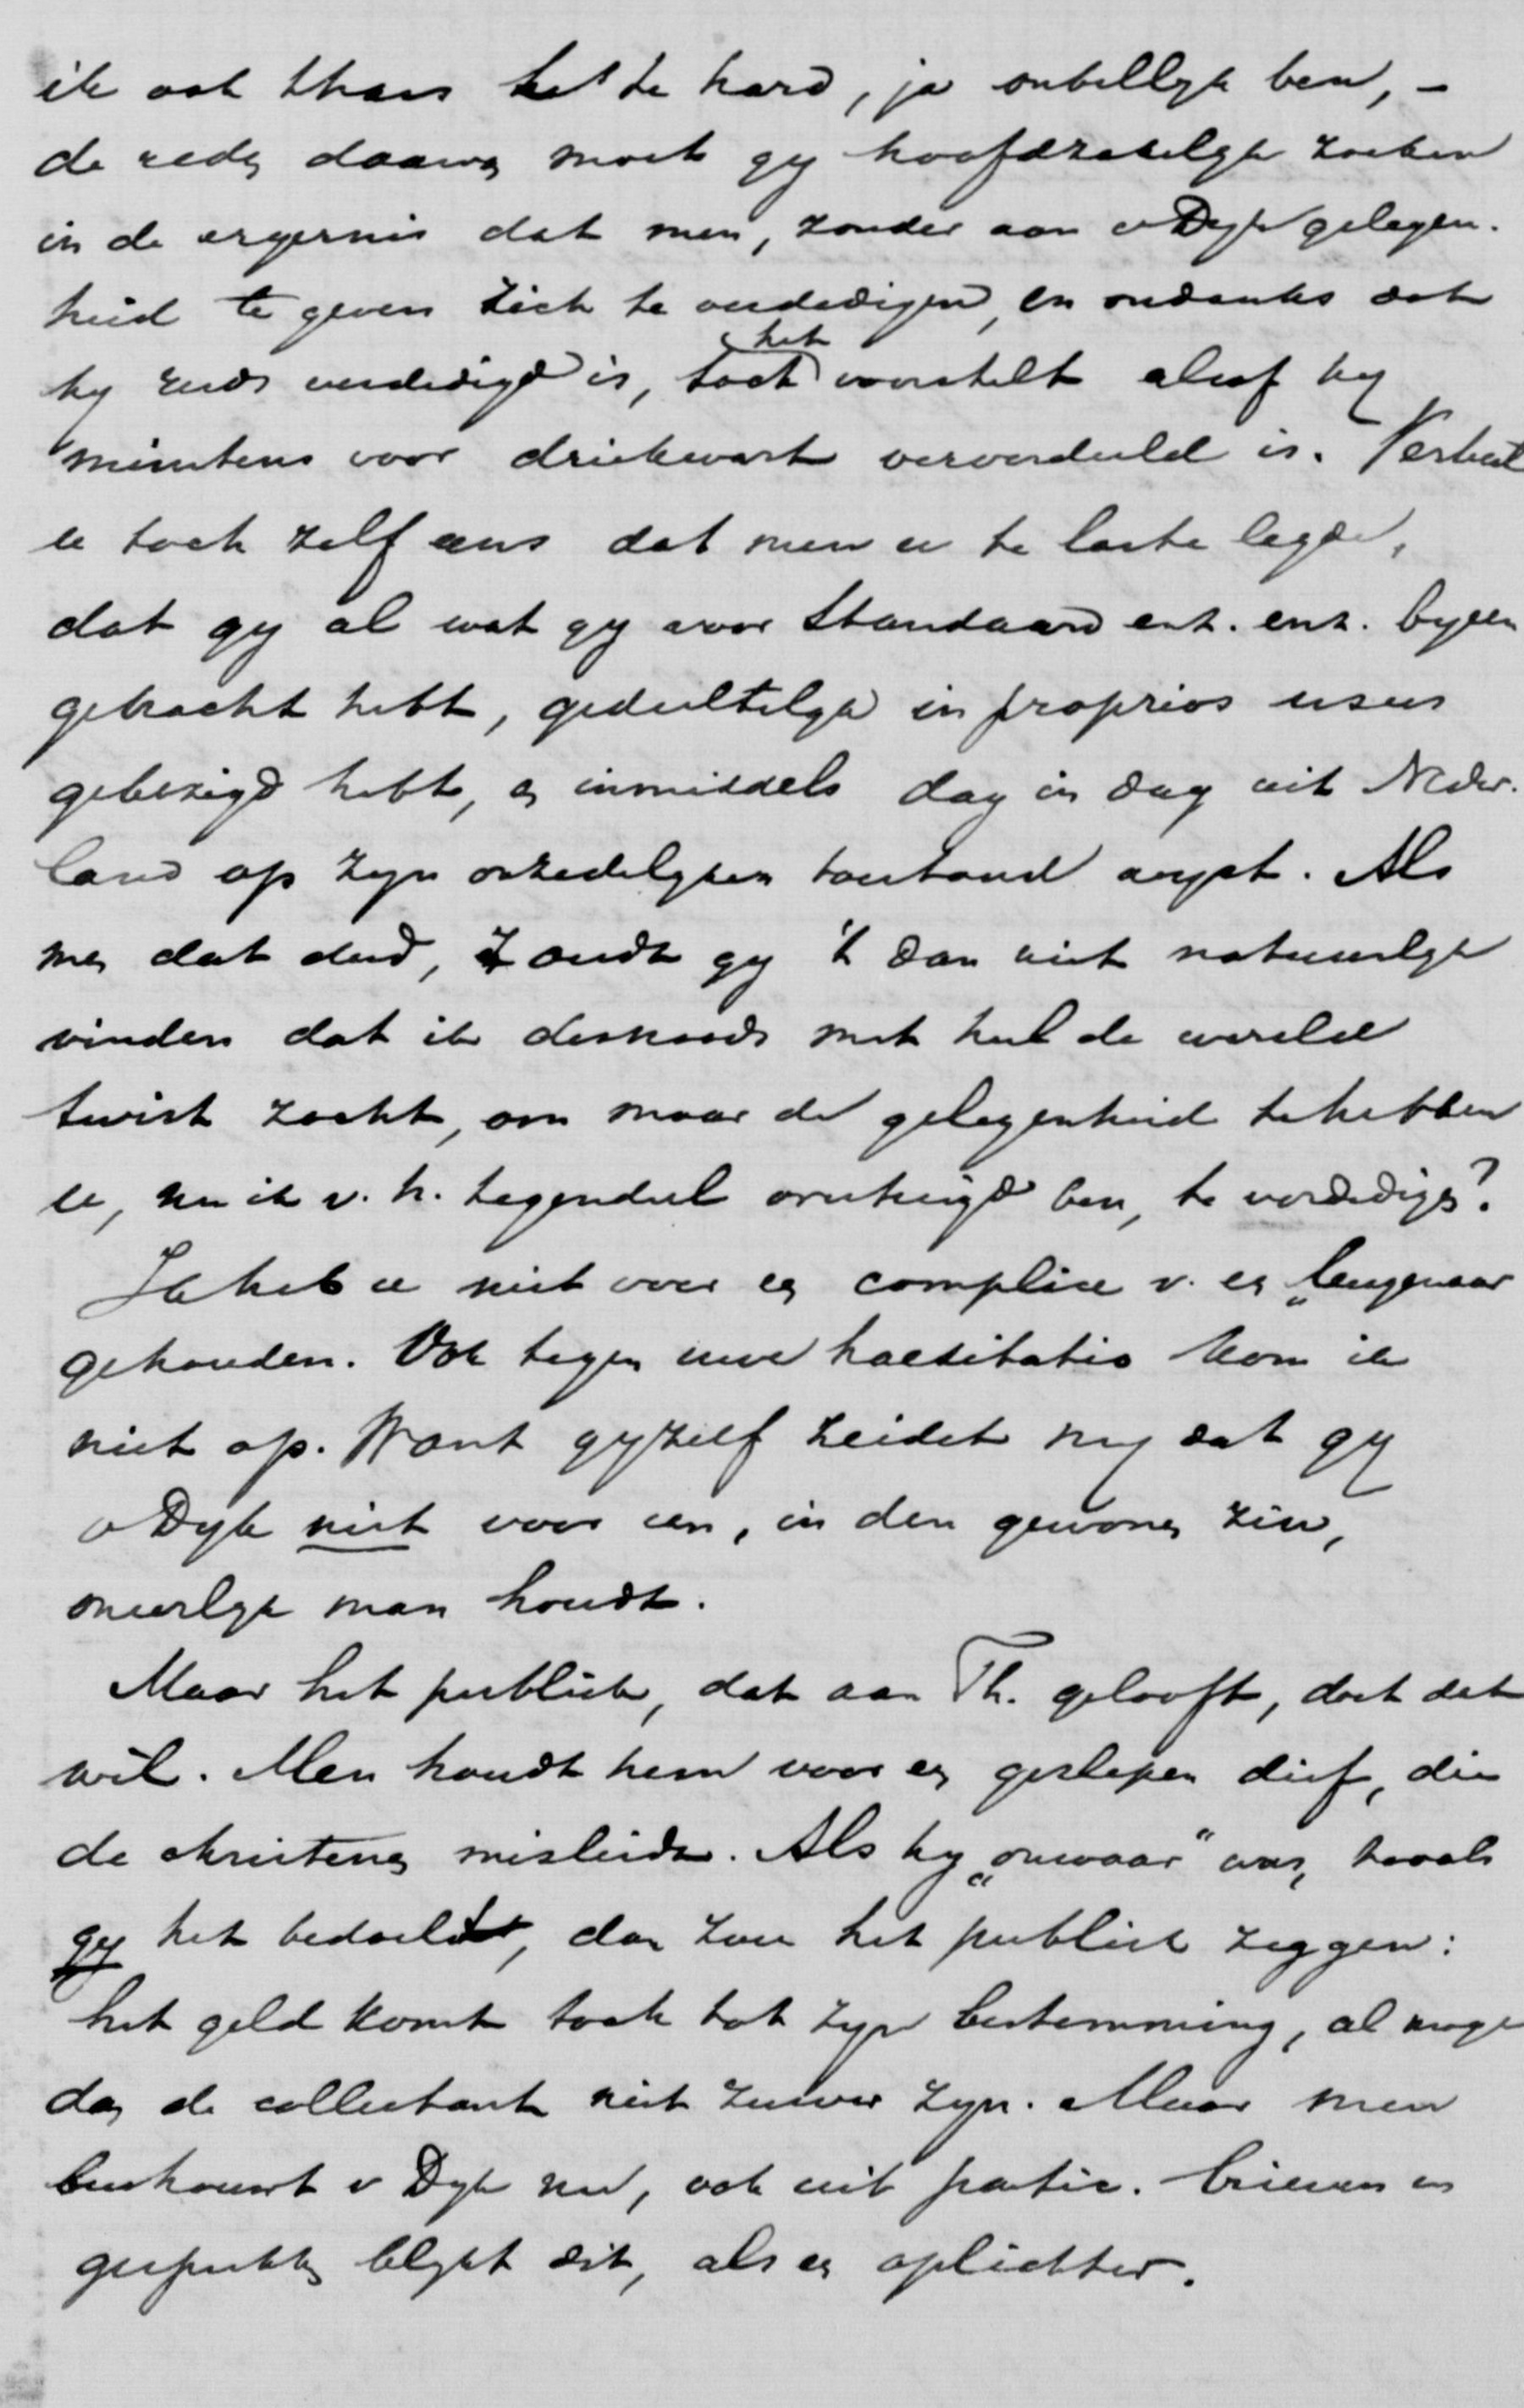 ik ook thans te hard, ja onbillyk ben, –
de reden daarvan moet gy hoofdzakelyk zoeken
in de ergernis dat men, zonder aan v Dyk gelegen-
heid te geven zich te verdedigen, en ondanks dat
hy reeds verdedigd is, toch het voorstelt alsof hy
minstens voor driekwart veroordeeld is. Verbeeld
u toch zelf eens dat men u te laste legde,
dat gy al wat gy voor Standaard enz. enz. byeen
gebracht hebt, gedeeltelyk in proprios usus
gebezigd hebt, en inmiddels dag in dag uit Neder-
land op zyn onzedelyken toestand wyst. Als
men dat deed, zoudt gy 't dan niet natuurlyk
vinden dat ik desnoods met heel de wereld
twist zocht, om maar de gelegenheid te hebben
u, nu ik v. h. tegendeel overtuigd ben, te verdedigen?
Ik heb u niet voor en complice v. en „leugenaar
gehouden. Ook tegen uwe haesitatio kom ik
niet op. Want gyzelf zeidet my dat gy
v Dyk niet voor een, in den gewonen zin,
oneerlyk man houdt.
Maar het publiek, dat aan Th. gelooft, doet dat
wél. Men houdt hem voor en geslepen dief, die
de christenen misleidt. Als hy „onwaar" was, zooals
gy het bedoelt, dan zou het publiek zeggen:
het geld komt toch tot zyn bestemming, al moge
dan de collectant niet zuiver zyn. Maar men
beschouwt v Dyk nu, ook uit partic. brieven en
gesprekken blykt dit, als en oplichter.